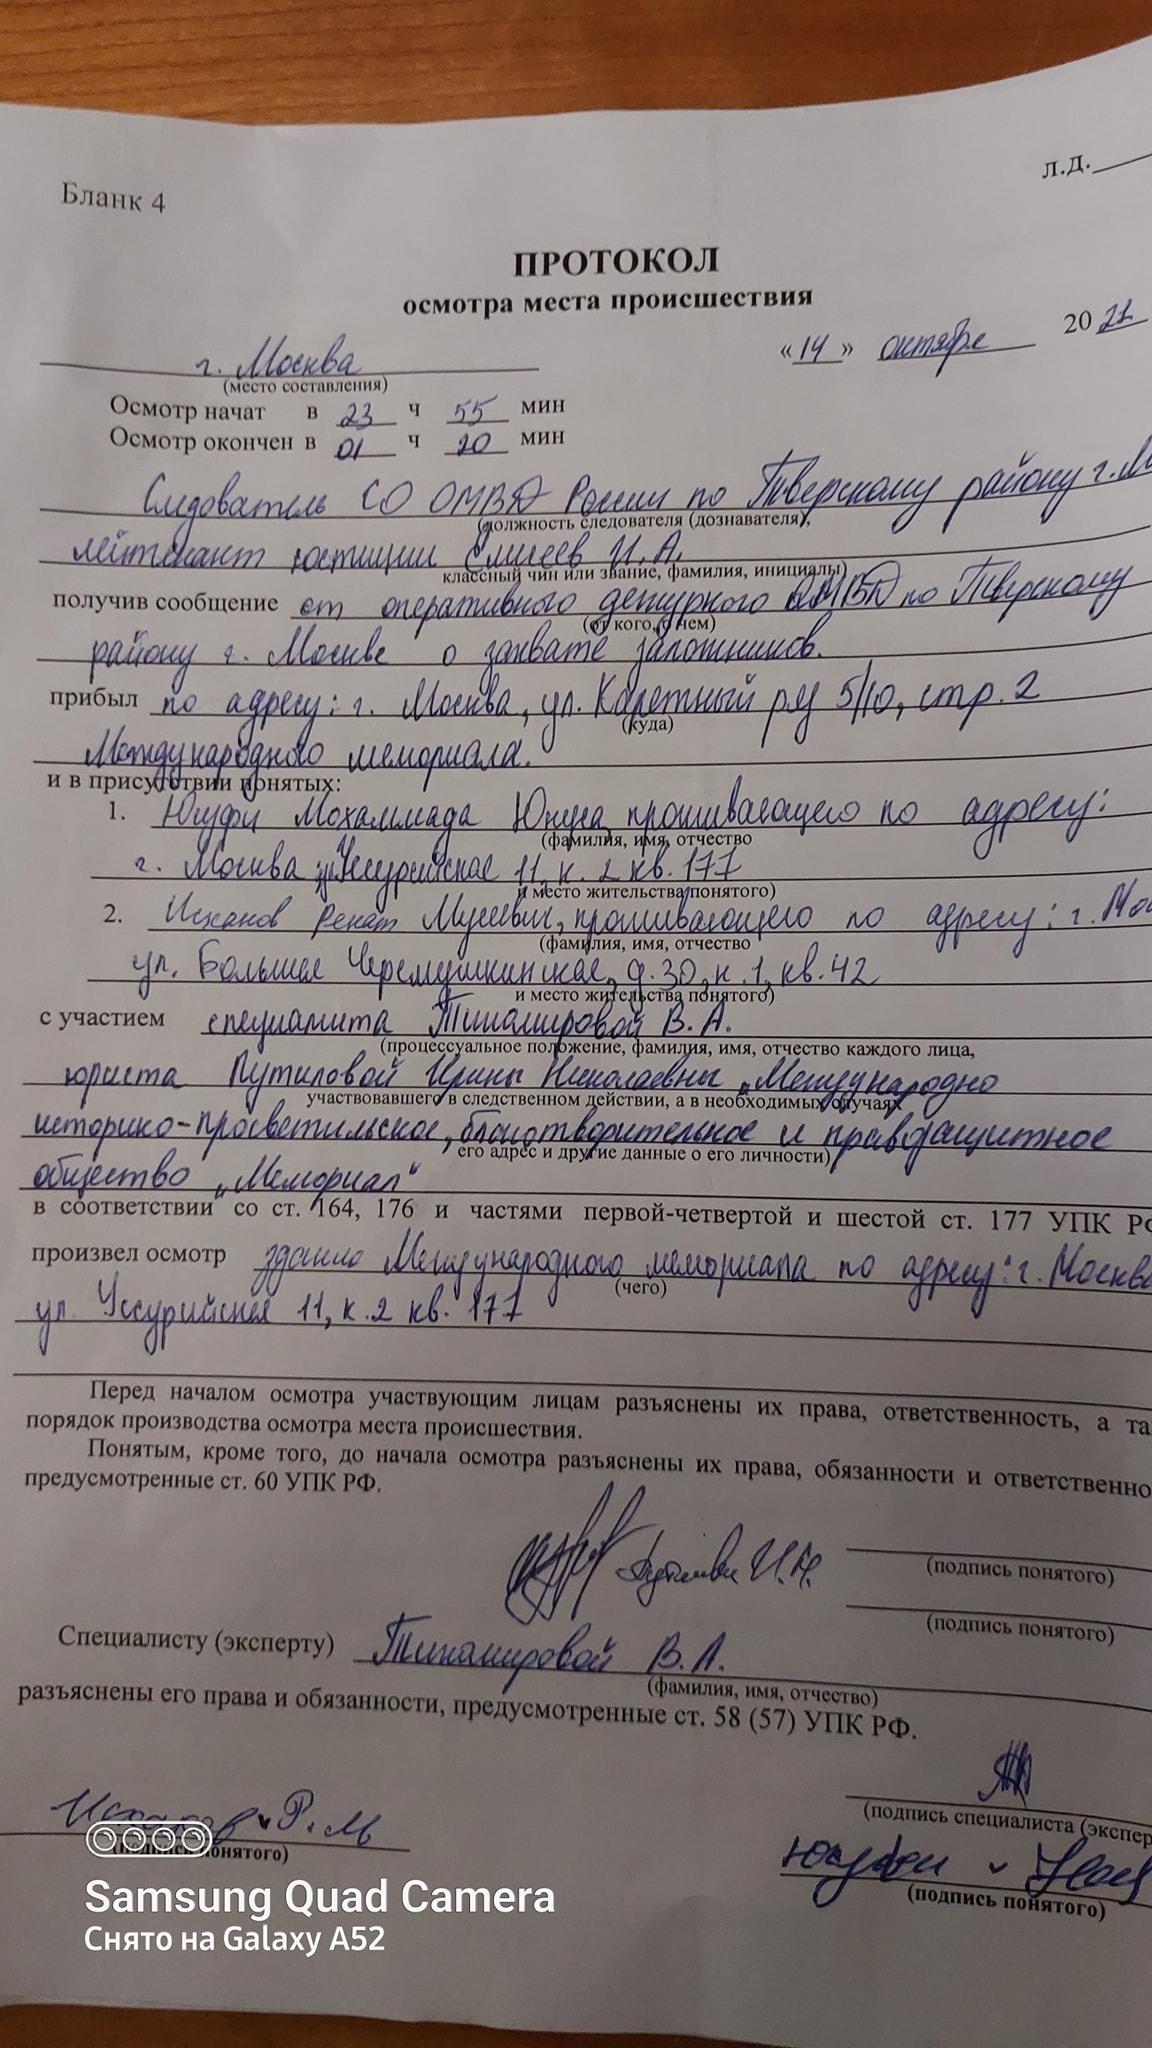 л.д.
Бланк 4
ПРОТОКОЛ
осмотра места происшествия
г. Москва « 14 » октября 20 21
(место составления)
Осмотр начат в 23 ч 55 мин
Осмотр окончен в 01 ч 20 мин
Следователь СО ОМВД России по Тверскому району г. М
(должность следователя (дознавателя),
лейтенант юстиции Елисеев И.А.
классный чин или звание, фамилия, инициалы)
получив сообщение от оперативного дежурного ОМВД по Тверскому
(от кого, о чем)
району г. Москве о захвате заложников.
прибыл по адресу: г. Москва, ул. Каретный ряд 5/10, стр. 2
(куда)
Международного мемориала.
и в присутствии понятых:
1. Юсуфи Мохаммада Юнуса проживающего по адресу:
(фамилия, имя, отчество
г. Москва ул. Уссурийская 11, к. 2 кв. 177
и место жительства понятого)
2. Исханов Ренат Мусевич, проживающего по адресу: г. Мос
(фамилия, имя, отчество
ул. Большая Черемушкинская, д. 30, к. 1, кв. 42
и место жительства понятого)
с участием специалиста В. А.
(процессуальное положение, фамилия, имя, отчество каждого лица,
юриста Путиловой Ирины Николаевны „Международно
участвовавшего в следственном действии, а в необходимых случаях
историко-просветильское, благотворительное и правозащитное
его адрес и другие данные о его личности)
общество „Мемориал“
в соответствии со ст. 164, 176 и частями первой-четвертой и шестой ст. 177 УПК РФ
произвел осмотр здания Международного мемориала по адресу: г. Москва
(чего)
ул. Уссурийская 11, к. 2 кв. 177
Перед началом осмотра участвующим лицам разъяснены их права, ответственность, а та
порядок производства осмотра места происшествия.
Понятым, кроме того, до начала осмотра разъяснены их права, обязанности и ответственно
предусмотренные ст. 60 УПК РФ.
Путилова И.Н.
(подпись понятого)
(подпись понятого)
Специалисту (эксперту) В. А.
(фамилия, имя, отчество)
разъяснены его права и обязанности, предусмотренные ст. 58 (57) УПК РФ.
(подпись специалиста (экспер
Исханов Р.М
(подпись понятого)
Юсуфи
(подпись понятого)
Samsung Quad Camera
Снято на Galaxy A52